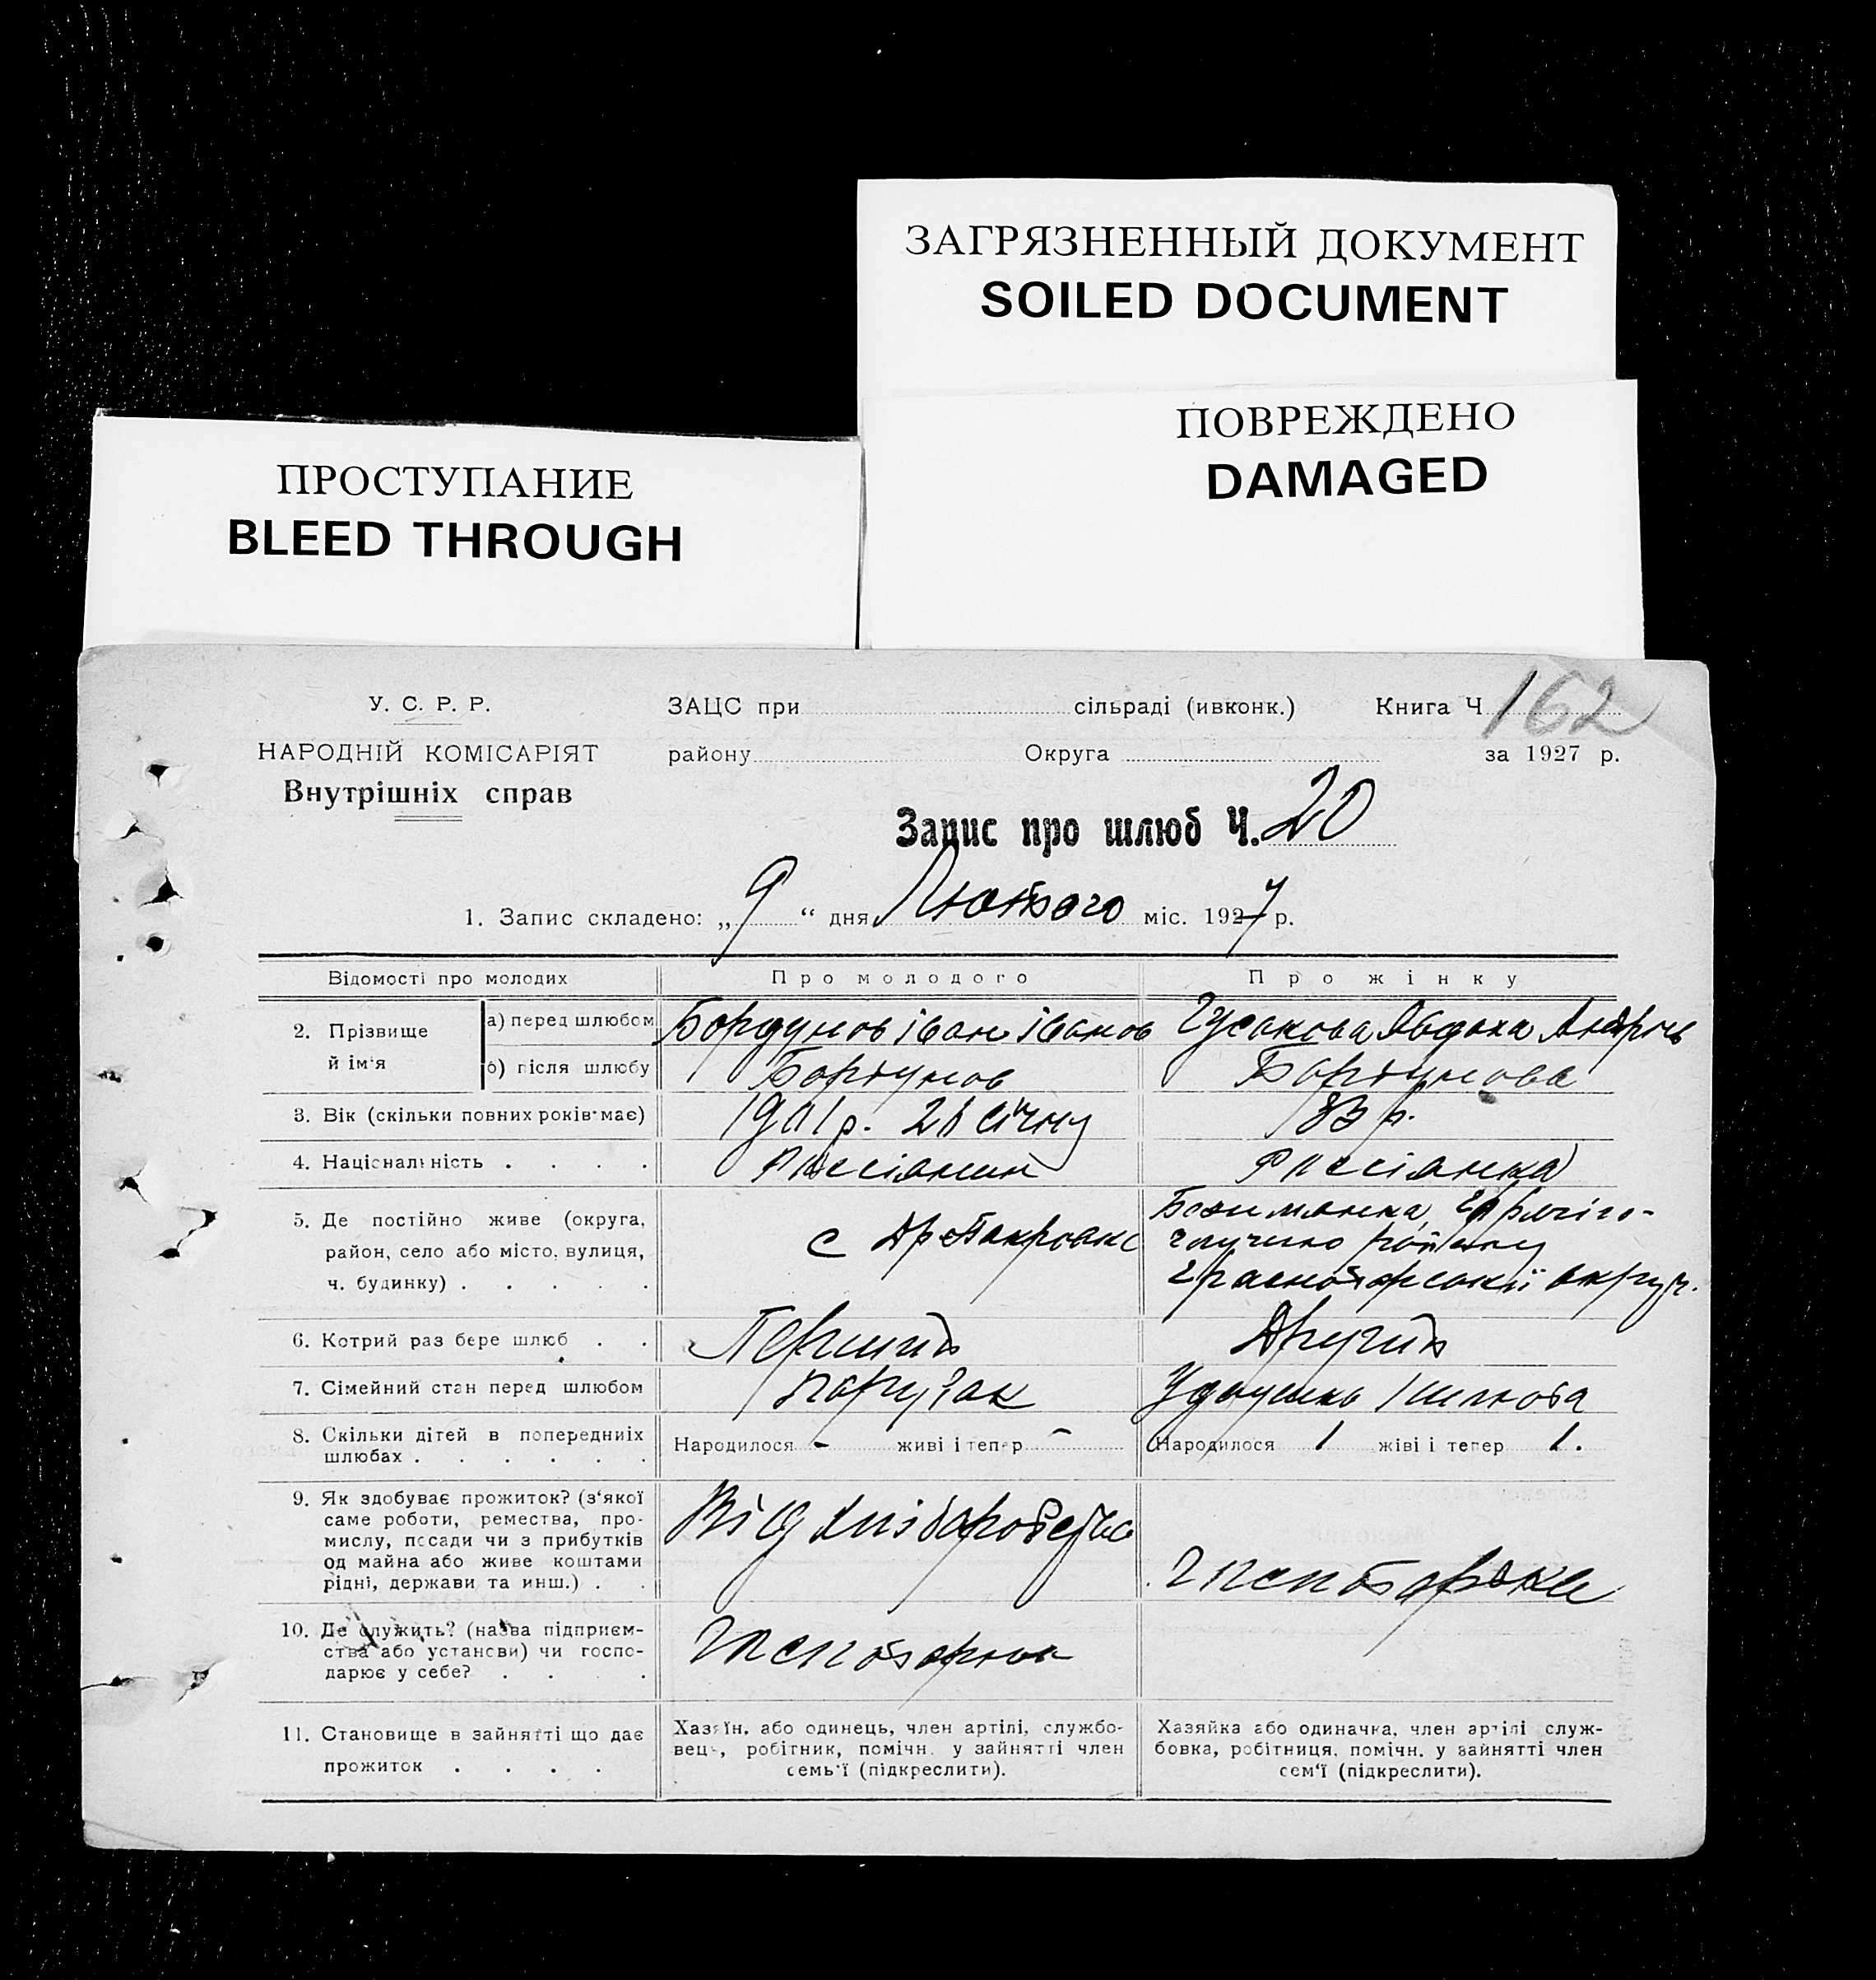 ЗАГРЯЗНЕННЫЙ ДОКУМЕНТ
SOILED DOCUMENT
ПОВРЕЖДЕНО
DAMAGED
ПРОСТУПАНИЕ
BLEED THROUGH
У. С. Р. Р.
НАРОДНІЙ КОМІСАРІЯТ
Внутрішніх справ
ЗАЦС при сільраді (ивконк.) Книга Ч 162
району Округа за 1927 р.
Запис про шлюб Ч. 20
1. Запис складено: „ 9 “ дня Лютого міс. 1927 р.
Відомості про молодих
Про молодого
Про жінку
2. Прізвище й ім'я
а) перед шлюбом
Бордунов іван іванов
Гусакова Авдока
б) після шлюбу
Бордунов
Бордунова
3. Вік (скільки повних років має)
1901 р. 28 січну
р.
4. Національність . . . .
Россіянин
Россіянка
5. Де постійно живе (округа,
район, село або місто, вулиця,
ч. будинку) . . . . .
с
округ.
6. Котрий раз бере шлюб . .
Перший
Другий
7. Сімейний стан перед шлюбом
парубак
8. Скільки дітей в попередниіх
шлюбах . . . . . .
Народилося - живі і тепер -
Народилося 1 жіві і тепер 1.
9. Як здобуває прожиток? (з'якої
саме роботи, ремества, про-
мислу, посади чи з прибутків
од майна або живе коштами
рідні, держави та инш.) . .
Від хліборобства
10. Де служить? (назва підприєм-
ства або установи) чи госпо-
дарює у себе? . . . .
11. Становище в зайнятті що дає
прожиток . . . .
Хазяїн. або одинець, член артілі, службо-
вець, робітник, помічн. у зайнятті член
семь'ї (підкреслити).
Хазяйка або одиначка, член артілі служ-
бовка, робітниця, помічн. у зайнятті член
сем'ї (підкреслити).